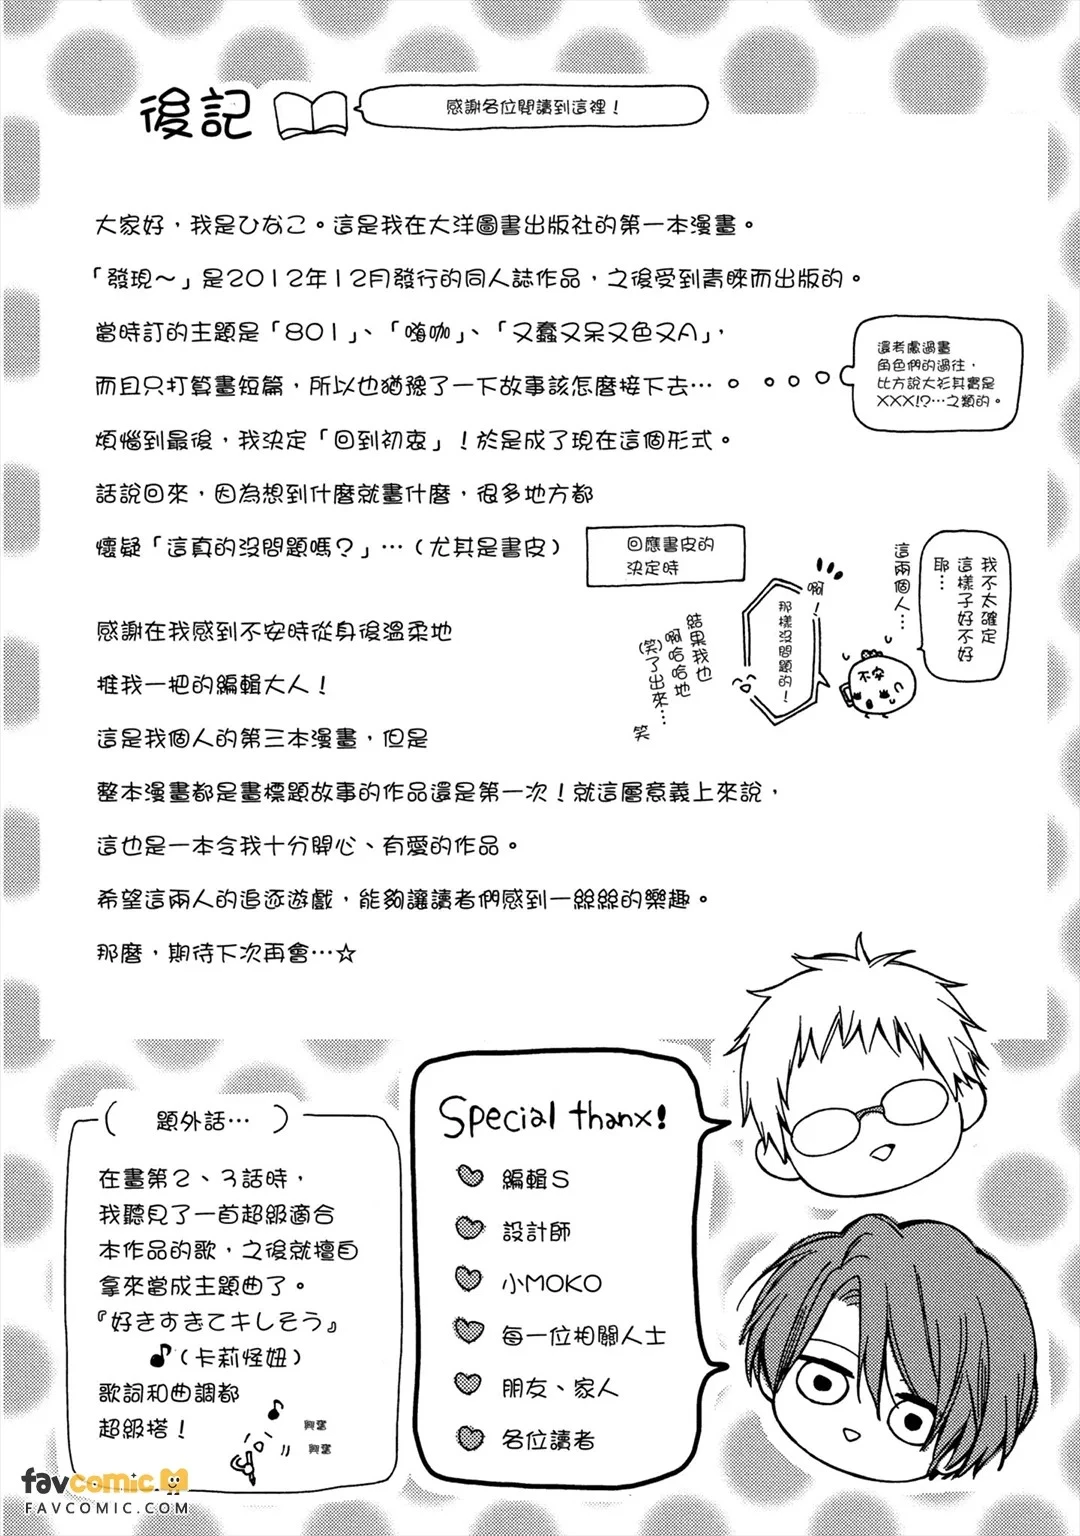 後記
感謝各位閱讀到這裡！
大家好，我是ひなこ。這是我在大洋圖書出版社的第一本漫畫。
「發現～」是2012年12月發行的同人誌作品，之後受到青睞而出版的。
當時訂的主題是「801」、「嗨咖」、「又蠢又呆又色又A」，
而且只打算畫短篇，所以也猶豫了一下故事該怎麼接下去…
這考慮過畫
角色們的過往，
比方說大衫其實是
XXX!?…之類的。
煩惱到最後，我決定「回到初衷」！於是成了現在這個形式。
話說回來，因為想到什麼就畫什麼，很多地方都
懷疑「這真的沒問題嗎？」…（尤其是書皮）
回應書皮的
決定時
我不太確定
這樣子好不好
耶…
這兩個人…
不安
啊！
那樣沒問題的！
結果我也
啊哈哈地
(笑)了出來…
笑
感謝在我感到不安時從身後溫柔地
推我一把的編輯大人！
這是我個人的第三本漫畫，但是
整本漫畫都是畫標題故事的作品還是第一次！就這層意義上來說，
這也是一本令我十分開心、有愛的作品。
希望這兩人的追逐遊戲，能夠讓讀者們感到一絲絲的樂趣。
那麼，期待下次再會…☆
（ 題外話… ）
在畫第2、3話時，
我聽見了一首超級適合
本作品的歌，之後就擅自
拿來當成主題曲了。
『好きすきてキしそう』
♪（卡莉怪妞）
歌詞和曲調都
超級搭！
興奮
興奮
Special thanx!
編輯S
設計師
小MOKO
每一位相關人士
朋友、家人
各位讀者
favcomic
FAVCOMIC.COM